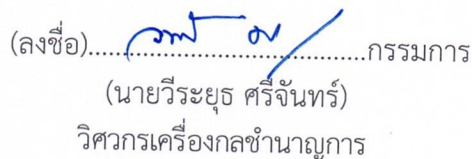 (ลงชื่อ)........................................กรรมการ
(นายวีระยุธ ศรีจันทร์)
วิศวกรเครื่องกลชำนาญการ